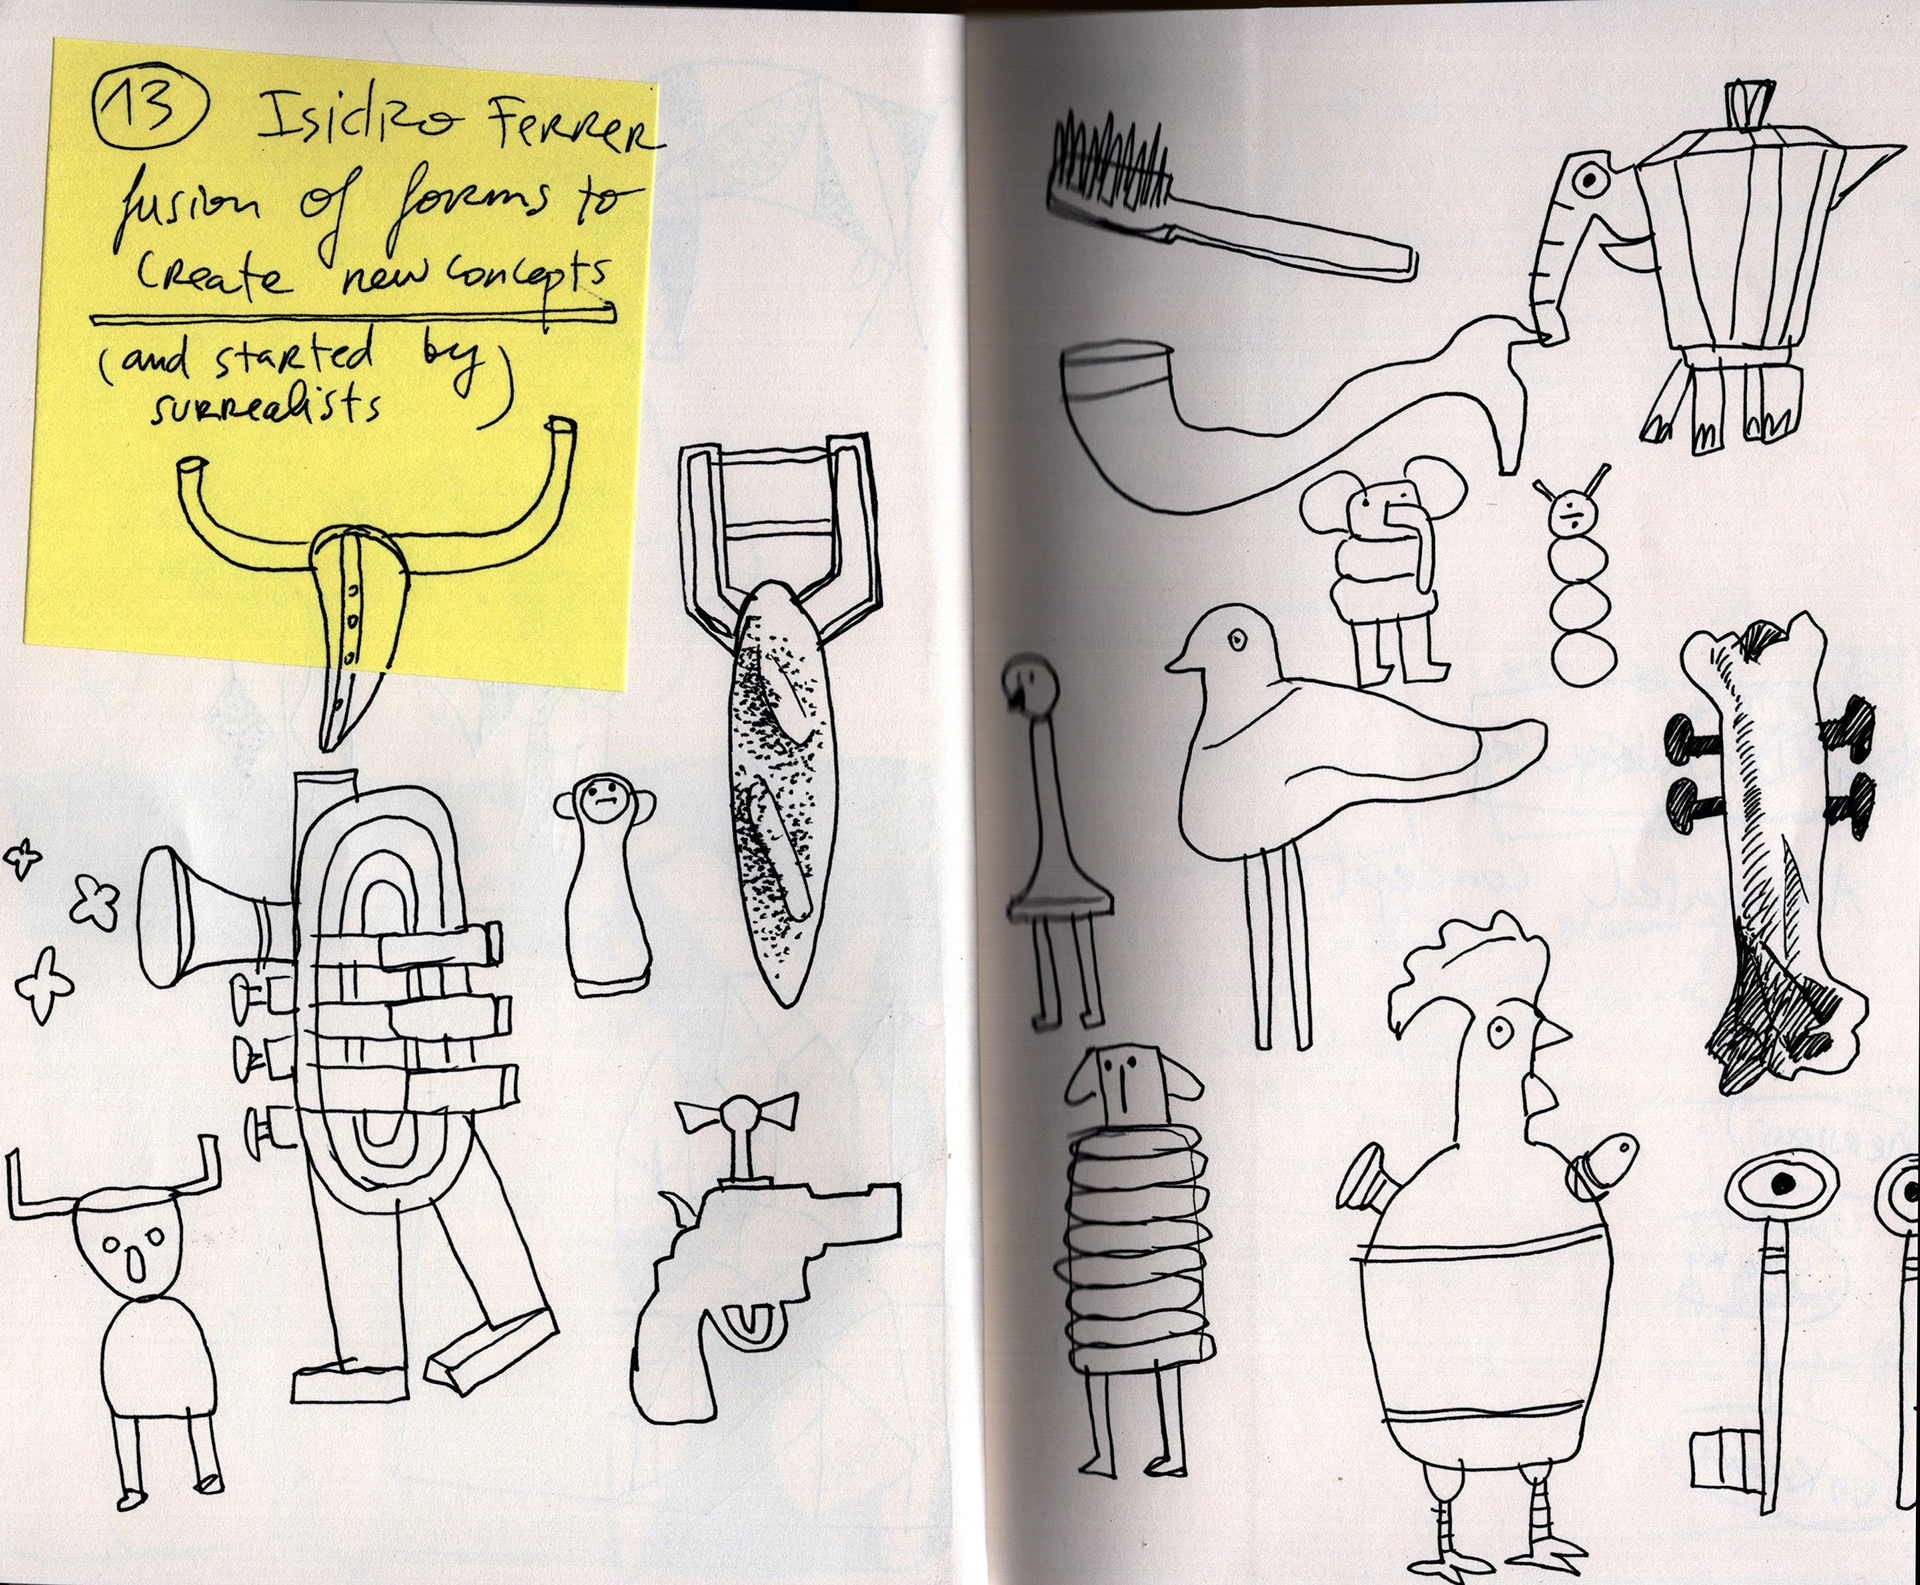 13 Isidro Ferrer
fusion of forms to
create new concepts
(and started by)
surrealists